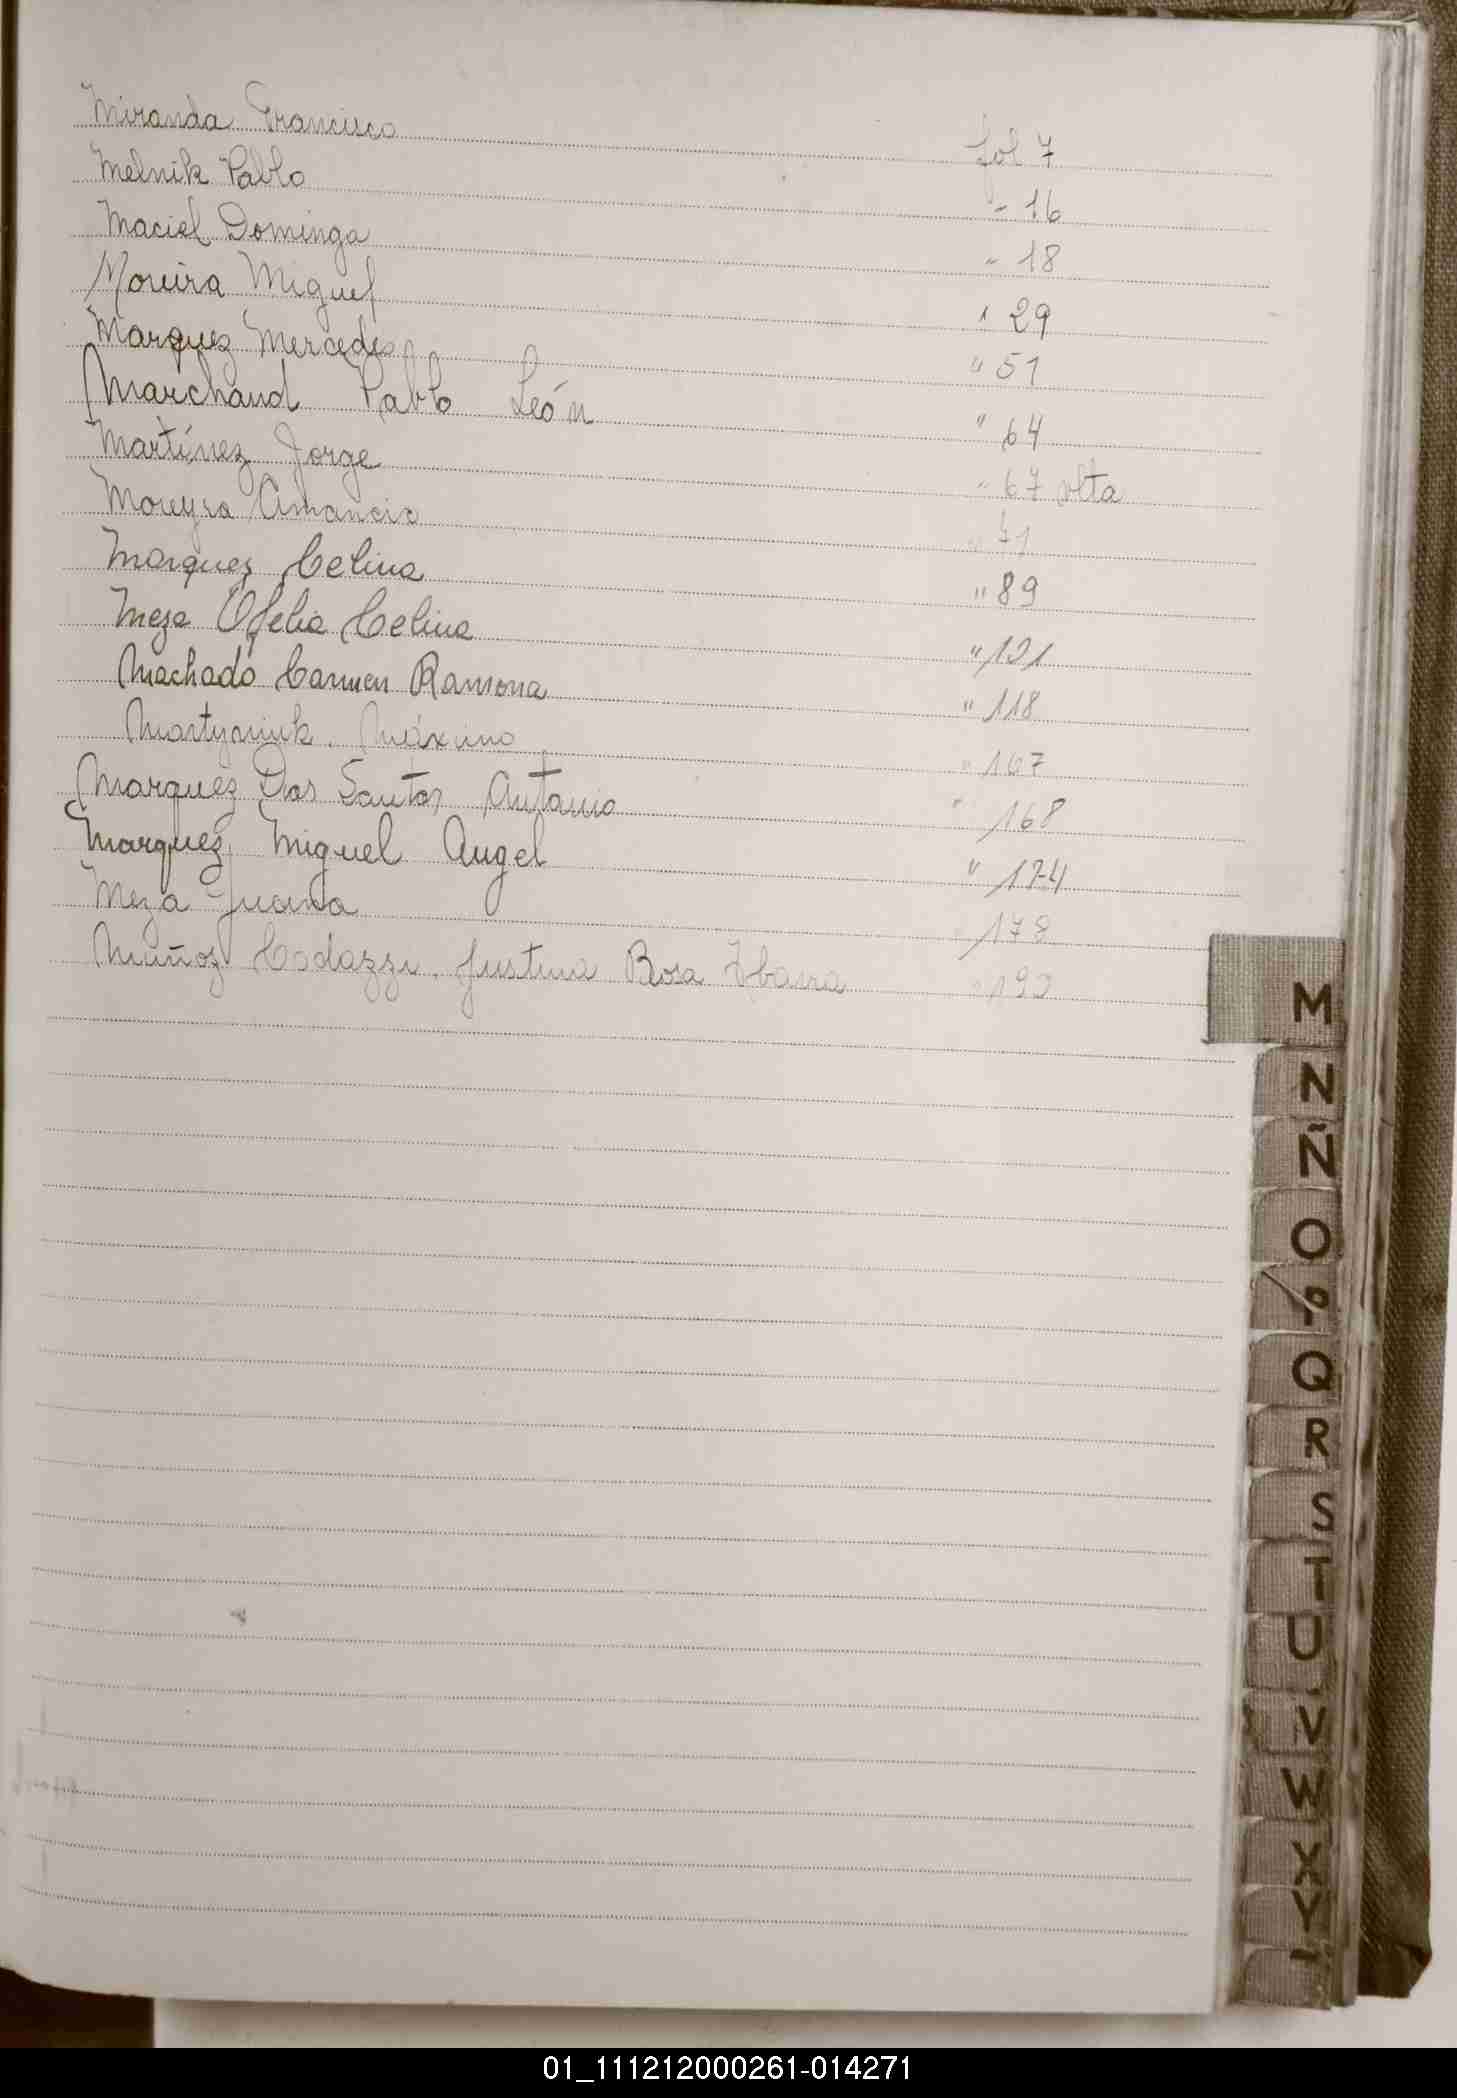 Miranda Francisco fol 7
Melnik Pablo " 16
Maciel Dominga " 18
Moreira Miguel " 29
Marquez Mercedes " 51
Marchand Pablo León " 64
Martínez Jorge " 67 vlta
Moreyra Amancio "
Marquez Celina " 89
Meza Ofelia Celina " 101
Machado Carmen Ramona " 118
Martyniuk Máximo " 167
Marquez Dos Santos Antonio " 168
Marquez Miguel Angel " 174
Meza Juana " 178
Muñoz Codazzi, Justina Rosa Ybarra " 190
M
N
Ñ
O
P
Q
R
S
T
U
V
W
X
Y
01_111212000261-014271